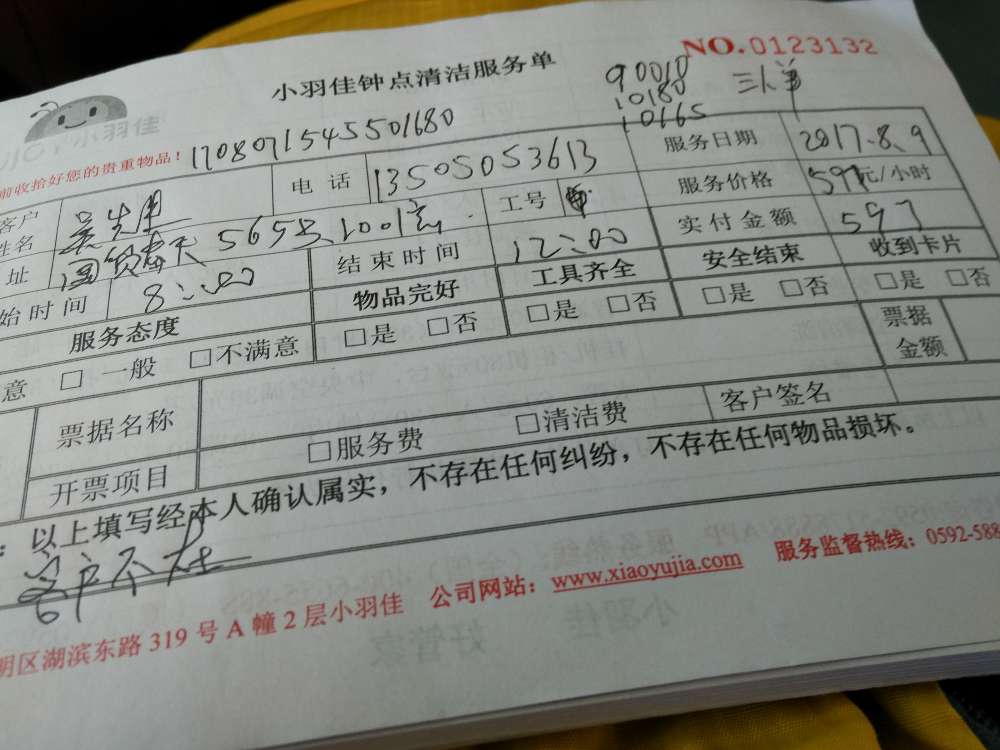 小羽佳钟点清洁服务单
NO.0123132
小羽佳
90010
10180
10165
三人单
前收拾好您的贵重物品！
1708071545501680
客户姓名 吴先生 电话 13505053613 服务日期 2017.8.9
址 5695 1001室 工号 服务价格 597元/小时
始时间 8:00 结束时间 12:00 实付金额 597
服务态度 物品完好 工具齐全 安全结束 收到卡片
意 □ 一般 □不满意 □是 □否 □是 □否 □是 □否 □是 □否
票据名称 票据金额
开票项目 □服务费 □清洁费 客户签名
：以上填写经本人确认属实，不存在任何纠纷，不存在任何物品损坏。
客户不在
明区湖滨东路319号A幢2层小羽佳 公司网站：www.xiaoyujia.com 服务监督热线：0592-588